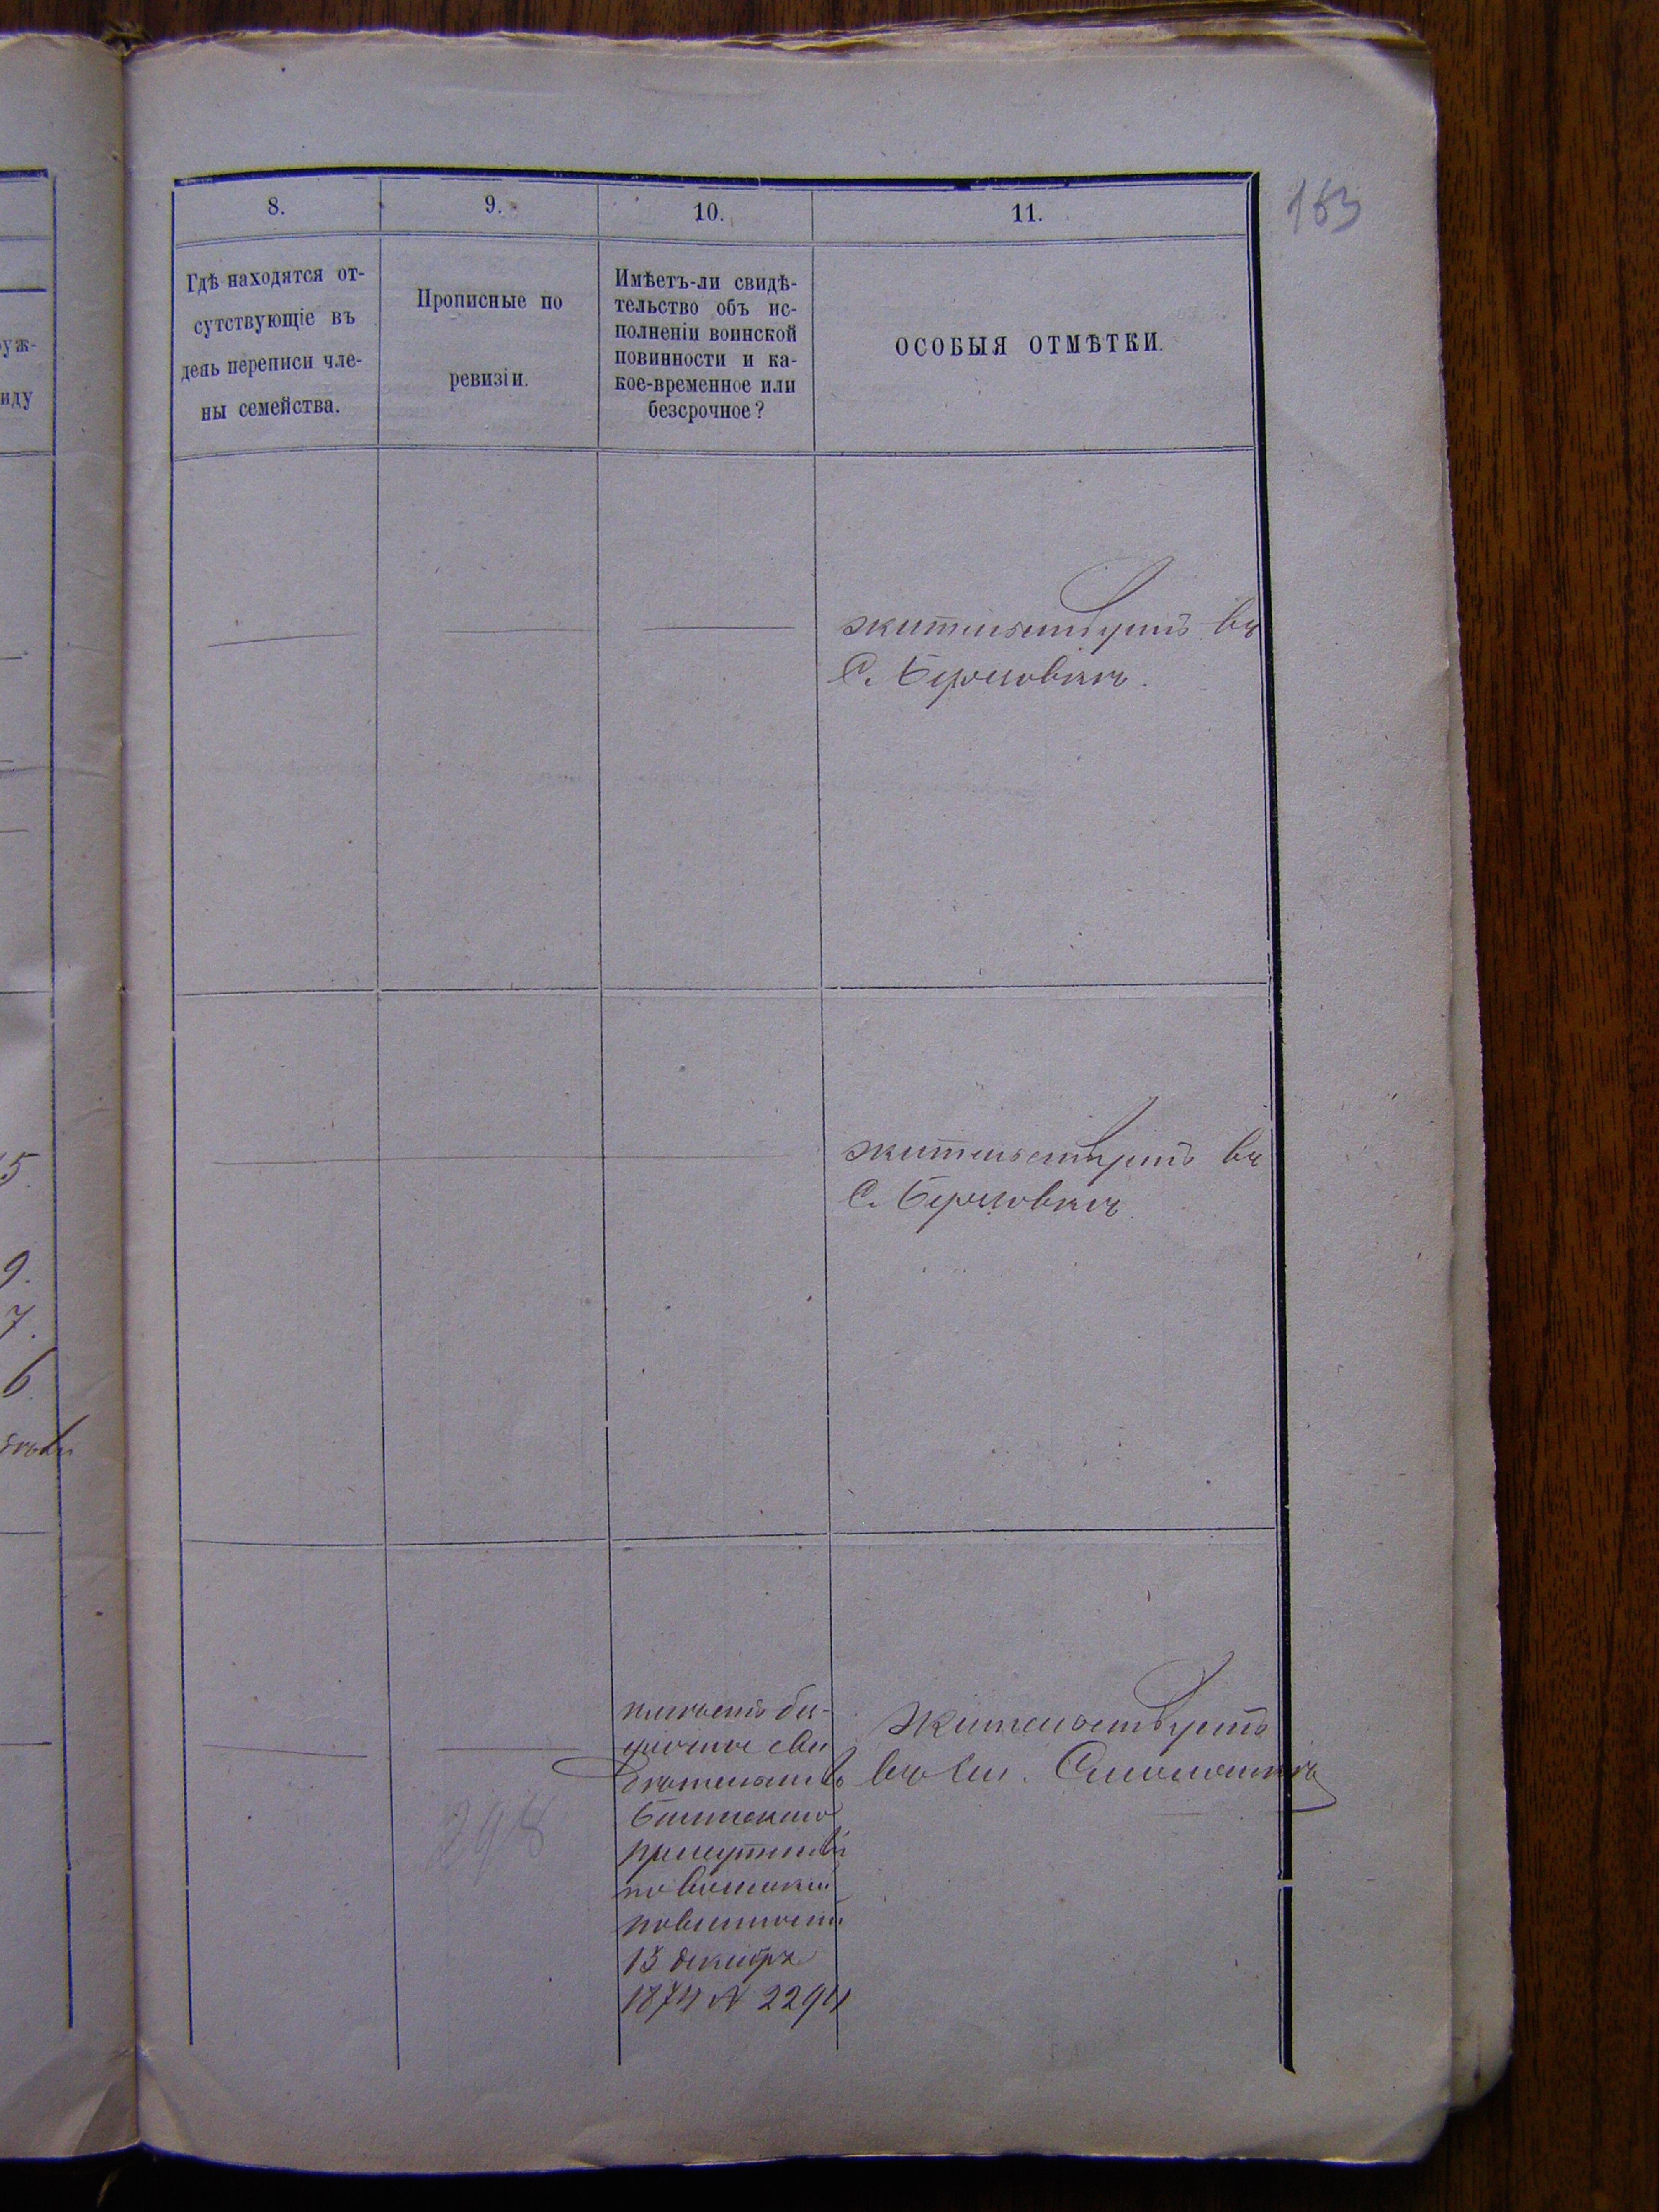 163
8.
9.
10.
11.
Гдѣ находятся от-
сутствующіе въ
день переписи чле-
ны семейства.
Прописные по
ревизіи.
Имѣетъ-ли свидѣ-
тельство объ ис-
полненіи воинской
повинности и ка-
кое-временное или
безсрочное?
ОСОБЫЯ ОТМѢТКИ.
уж-
иду
5.
9.
7.
6
жительствуетъ въ
С.
жительствуетъ въ
С.
298
имѣетъ без-
срочное сви
дѣтельство
присутствія
по воинской
повинности
13 декабря
1874 № 2294
Жительствуетъ
въ